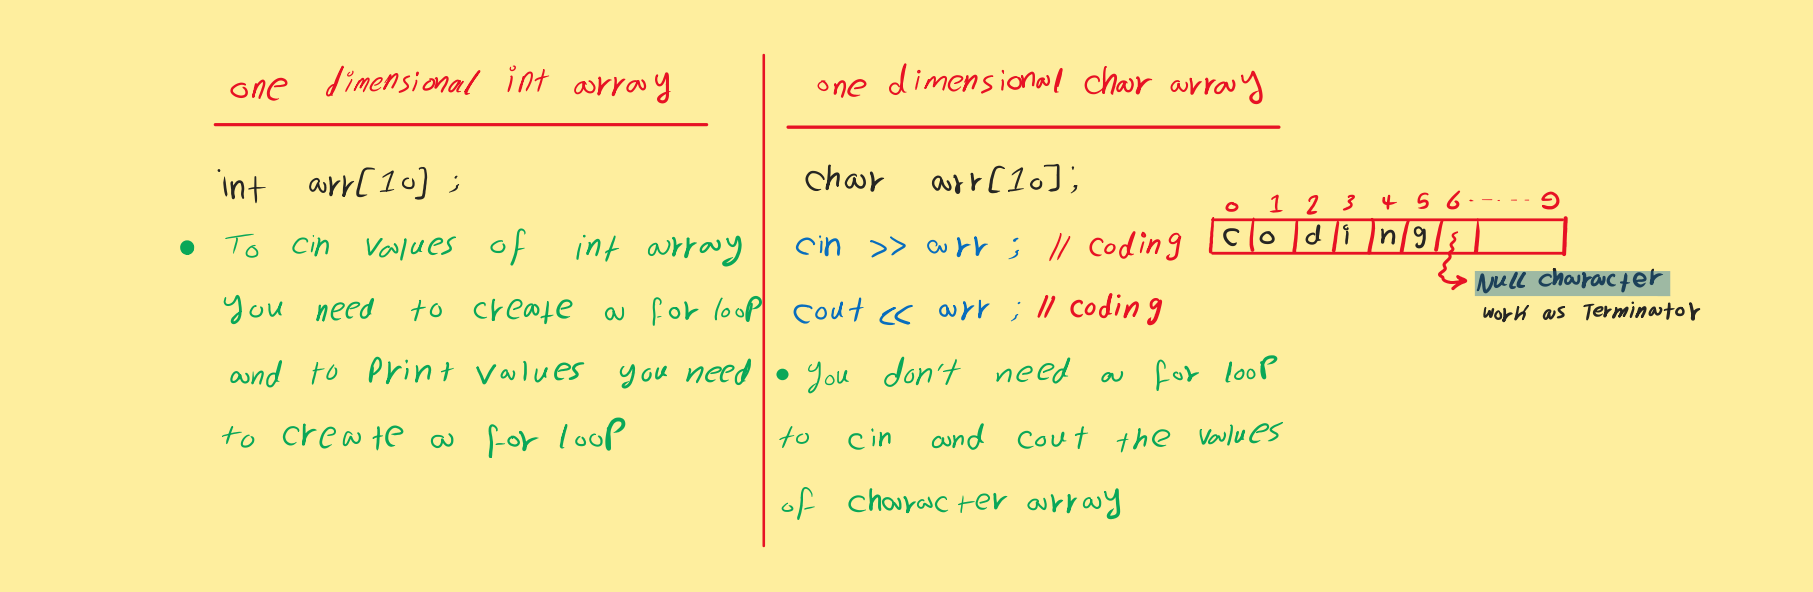 one dimensional int array
int arr[10] ;
• To cin values of int array
you need to create a for loop
and to Print values you need
to create a for loop
one dimensional char array
char arr[10];
cin >> arr ; // coding
cout << arr ; // coding
• you don't need a for loop
to cin and cout the values
of character array
0 1 2 3 4 5 6 ------- 9
c o d i n g
Null character
work as Terminator